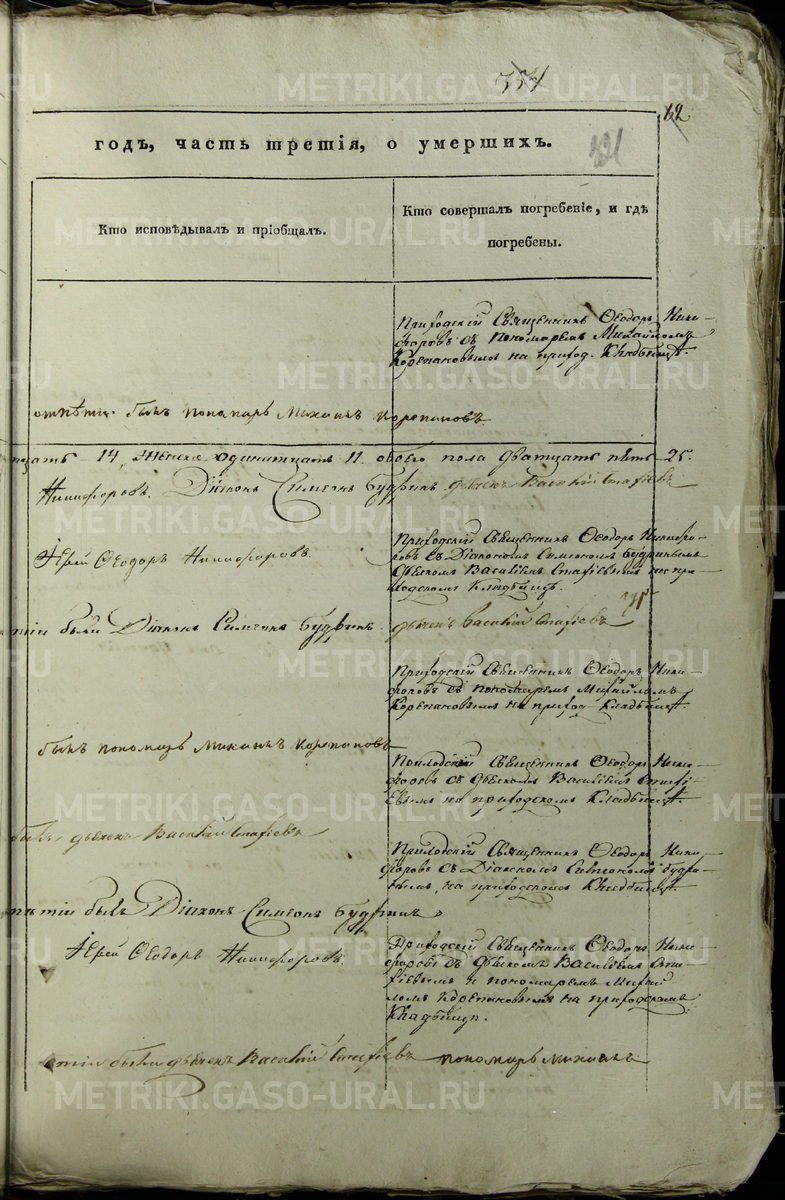 354
12
METRIKI.GASO-URAL.RU
годъ, часть третія, о умершихъ.
Кто исповѣдывалъ и пріобщалъ.
Кто совершалъ погребеніе, и гдѣ
погребены.
Приходскій Священникъ Ѳеодоръ Ники-
форовъ съ пономаремъ Михайломъ
Корепановымъ на приход. Кладбищѣ.
отпѣтіи былъ пономарь Михаилъ Корепановъ
14, женска одинатцать 11. обоего пола дватцать пять 25.
Никифоровъ. Діаконъ Симеонъ Будринъ дьячекъ Василій
Іерей Ѳеодоръ Никифоровъ.
Приходскій Священникъ Ѳеодоръ Никифо-
ровъ съ Діакономъ Симеономъ Будринымъ
дьячкомъ Василіемъ на при-
ходскомъ Кладбищѣ.
были Діаконъ Симеонъ Будринъ дьячекъ Василій
Приходскій Священникъ Ѳеодоръ Ники-
форовъ съ пономаремъ Михайломъ
Корепановымъ на приход. Кладбищѣ.
былъ пономарь Михаилъ Корепановъ
Приходскій Священникъ Ѳеодоръ Ники-
форовъ съ дьячкомъ Василіемъ
на приходскомъ Кладбищѣ.
былъ дьячекъ Василій
Приходскій Священникъ Ѳеодоръ Ники-
форовъ съ Діакономъ Симеономъ Будри-
нымъ, на приходскомъ Кладбищѣ
былъ Діаконъ Симеонъ Будринъ
Іерей Ѳеодоръ Никифоровъ.
Приходскій Священникъ Ѳеодоръ Ники-
форовъ съ дьячкомъ Василіемъ
и пономаремъ Михай-
ломъ Корепановымъ на приходскомъ
Кладбищѣ.
были дьячекъ Василій пономарь Михаилъ